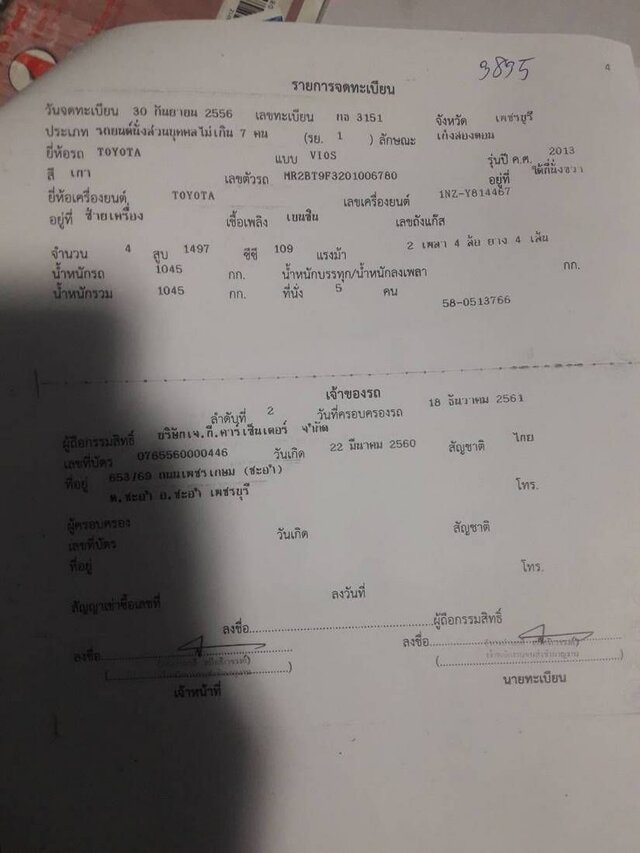 3895
4
รายการจดทะเบียน
วันจดทะเบียน 30 กันยายน 2556 เลขทะเบียน กอ 3151 จังหวัด เพชรบุรี
ประเภท รถยนต์นั่งส่วนบุคคลไม่เกิน 7 คน (รย. 1 ) ลักษณะ เก๋งสองตอน
ยี่ห้อรถ TOYOTA แบบ VIOS รุ่นปี ค.ศ. 2013
สี เทา เลขตัวรถ MR2BT9F3201006780 อยู่ที่ ใต้ที่นั่งขวา
ยี่ห้อเครื่องยนต์ TOYOTA เลขเครื่องยนต์ 1NZ-Y814467
อยู่ที่ ซ้ายเครื่อง เชื้อเพลิง เบนซิน เลขถังแก๊ส
จำนวน 4 สูบ 1497 ซีซี 109 แรงม้า 2 เพลา 4 ล้อ ยาง 4 เส้น
น้ำหนักรถ 1045 กก. น้ำหนักบรรทุก/น้ำหนักลงเพลา กก.
น้ำหนักรวม 1045 กก. ที่นั่ง 5 คน
58-0513766
เจ้าของรถ
ลำดับที่ 2 วันที่ครอบครองรถ 18 ธันวาคม 2561
ผู้ถือกรรมสิทธิ์ บริษัทเจ.ที.คาร์เซ็นเตอร์ จำกัด
เลขที่บัตร 0765560000446 วันเกิด 22 มีนาคม 2560 สัญชาติ ไทย
ที่อยู่ 653/69 ถนนเพชรเกษม (ชะอำ)
ต.ชะอำ อ.ชะอำ เพชรบุรี โทร.
ผู้ครอบครอง
เลขที่บัตร วันเกิด สัญชาติ
ที่อยู่ โทร.
สัญญาเช่าซื้อเลขที่ ลงวันที่
ลงชื่อ ผู้ถือกรรมสิทธิ์
ลงชื่อ ลงชื่อ
เจ้าหน้าที่ นายทะเบียน